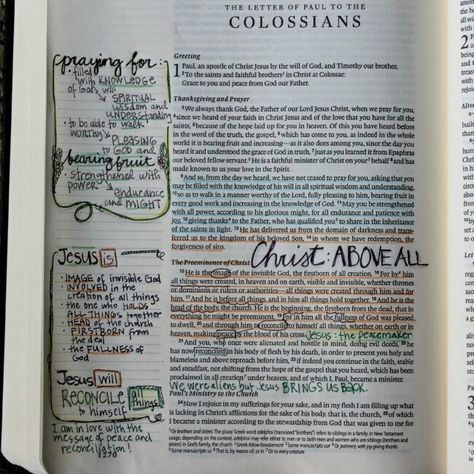 THE LETTER OF PAUL TO THE
COLOSSIANS
praying for:
filled
with KNOWLEDGE
of God's will
SPIRITUAL
wisdom and
UNDERSTANDING
to be able to walk
WORTHY
PLEASING
to GOD and
bearing fruit
strengthened with
power
endurance
and MIGHT
Greeting
1 Paul, an apostle of Christ Jesus by the will of God, and Timothy our brother,
2 To the saints and faithful brothers in Christ at Colossae:
Grace to you and peace from God our Father.
Thanksgiving and Prayer
3 We always thank God, the Father of our Lord Jesus Christ, when we pray for you,
since we heard of your faith in Christ Jesus and of the love that you have for all the
saints, because of the hope laid up for you in heaven. Of this you have heard before
in the word of the truth, the gospel, which has come to you, as indeed in the whole
world it is bearing fruit and increasing—as it also does among you, since the day you
heard it and understood the grace of God in truth, just as you learned it from Epaphras
our beloved fellow servant. He is a faithful minister of Christ on your behalf and has
made known to us your love in the Spirit.
9 And so, from the day we heard, we have not ceased to pray for you, asking that you
may be filled with the knowledge of his will in all spiritual wisdom and understanding,
10 so as to walk in a manner worthy of the Lord, fully pleasing to him, bearing fruit in
every good work and increasing in the knowledge of God. 11 May you be strengthened
with all power, according to his glorious might, for all endurance and patience with
joy, 12 giving thanks to the Father, who has qualified you to share in the inheritance
of the saints in light. 13 He has delivered us from the domain of darkness and trans-
ferred us to the kingdom of his beloved Son, 14 in whom we have redemption, the
forgiveness of sins.
Christ: ABOVE ALL
The Preeminence of Christ
15 He is the image of the invisible God, the firstborn of all creation. 16 For by him
all things were created, in heaven and on earth, visible and invisible, whether thrones
or dominions or rulers or authorities—all things were created through him and for
him. 17 And he is before all things, and in him all things hold together. 18 And he is the
head of the body, the church. He is the beginning, the firstborn from the dead, that in
everything he might be preeminent. 19 For in him all the fullness of God was pleased
to dwell, 20 and through him to reconcile to himself all things, whether on earth or
in heaven, making peace by the blood of his cross. Jesus: the peacemaker
21 And you, who once were alienated and hostile in mind, doing evil deeds, 22 he
has now reconciled in his body of flesh by his death, in order to present you holy and
blameless and above reproach before him, 23 if indeed you continue in the faith, stable
and steadfast, not shifting from the hope of the gospel that you heard, which has been
proclaimed in all creation under heaven, and of which I, Paul, became a minister.
We were aliens but Jesus BRINGS US BACK.
Paul's Ministry to the Church
24 Now I rejoice in my sufferings for your sake, and in my flesh I am filling up what
is lacking in Christ's afflictions for the sake of his body, that is, the church, 25 of which
I became a minister according to the stewardship from God that was given to me for
Jesus is
· IMAGE of invisible God
· INVOLVED in the
creation of all things
· the one who HOLDS
ALL THINGS together
· HEAD of the church
· FIRSTBORN from
the dead
· the FULLNESS of
GOD
Jesus will
RECONCILE all things
to himself
I am in love with the
message of peace and
reconciliation!